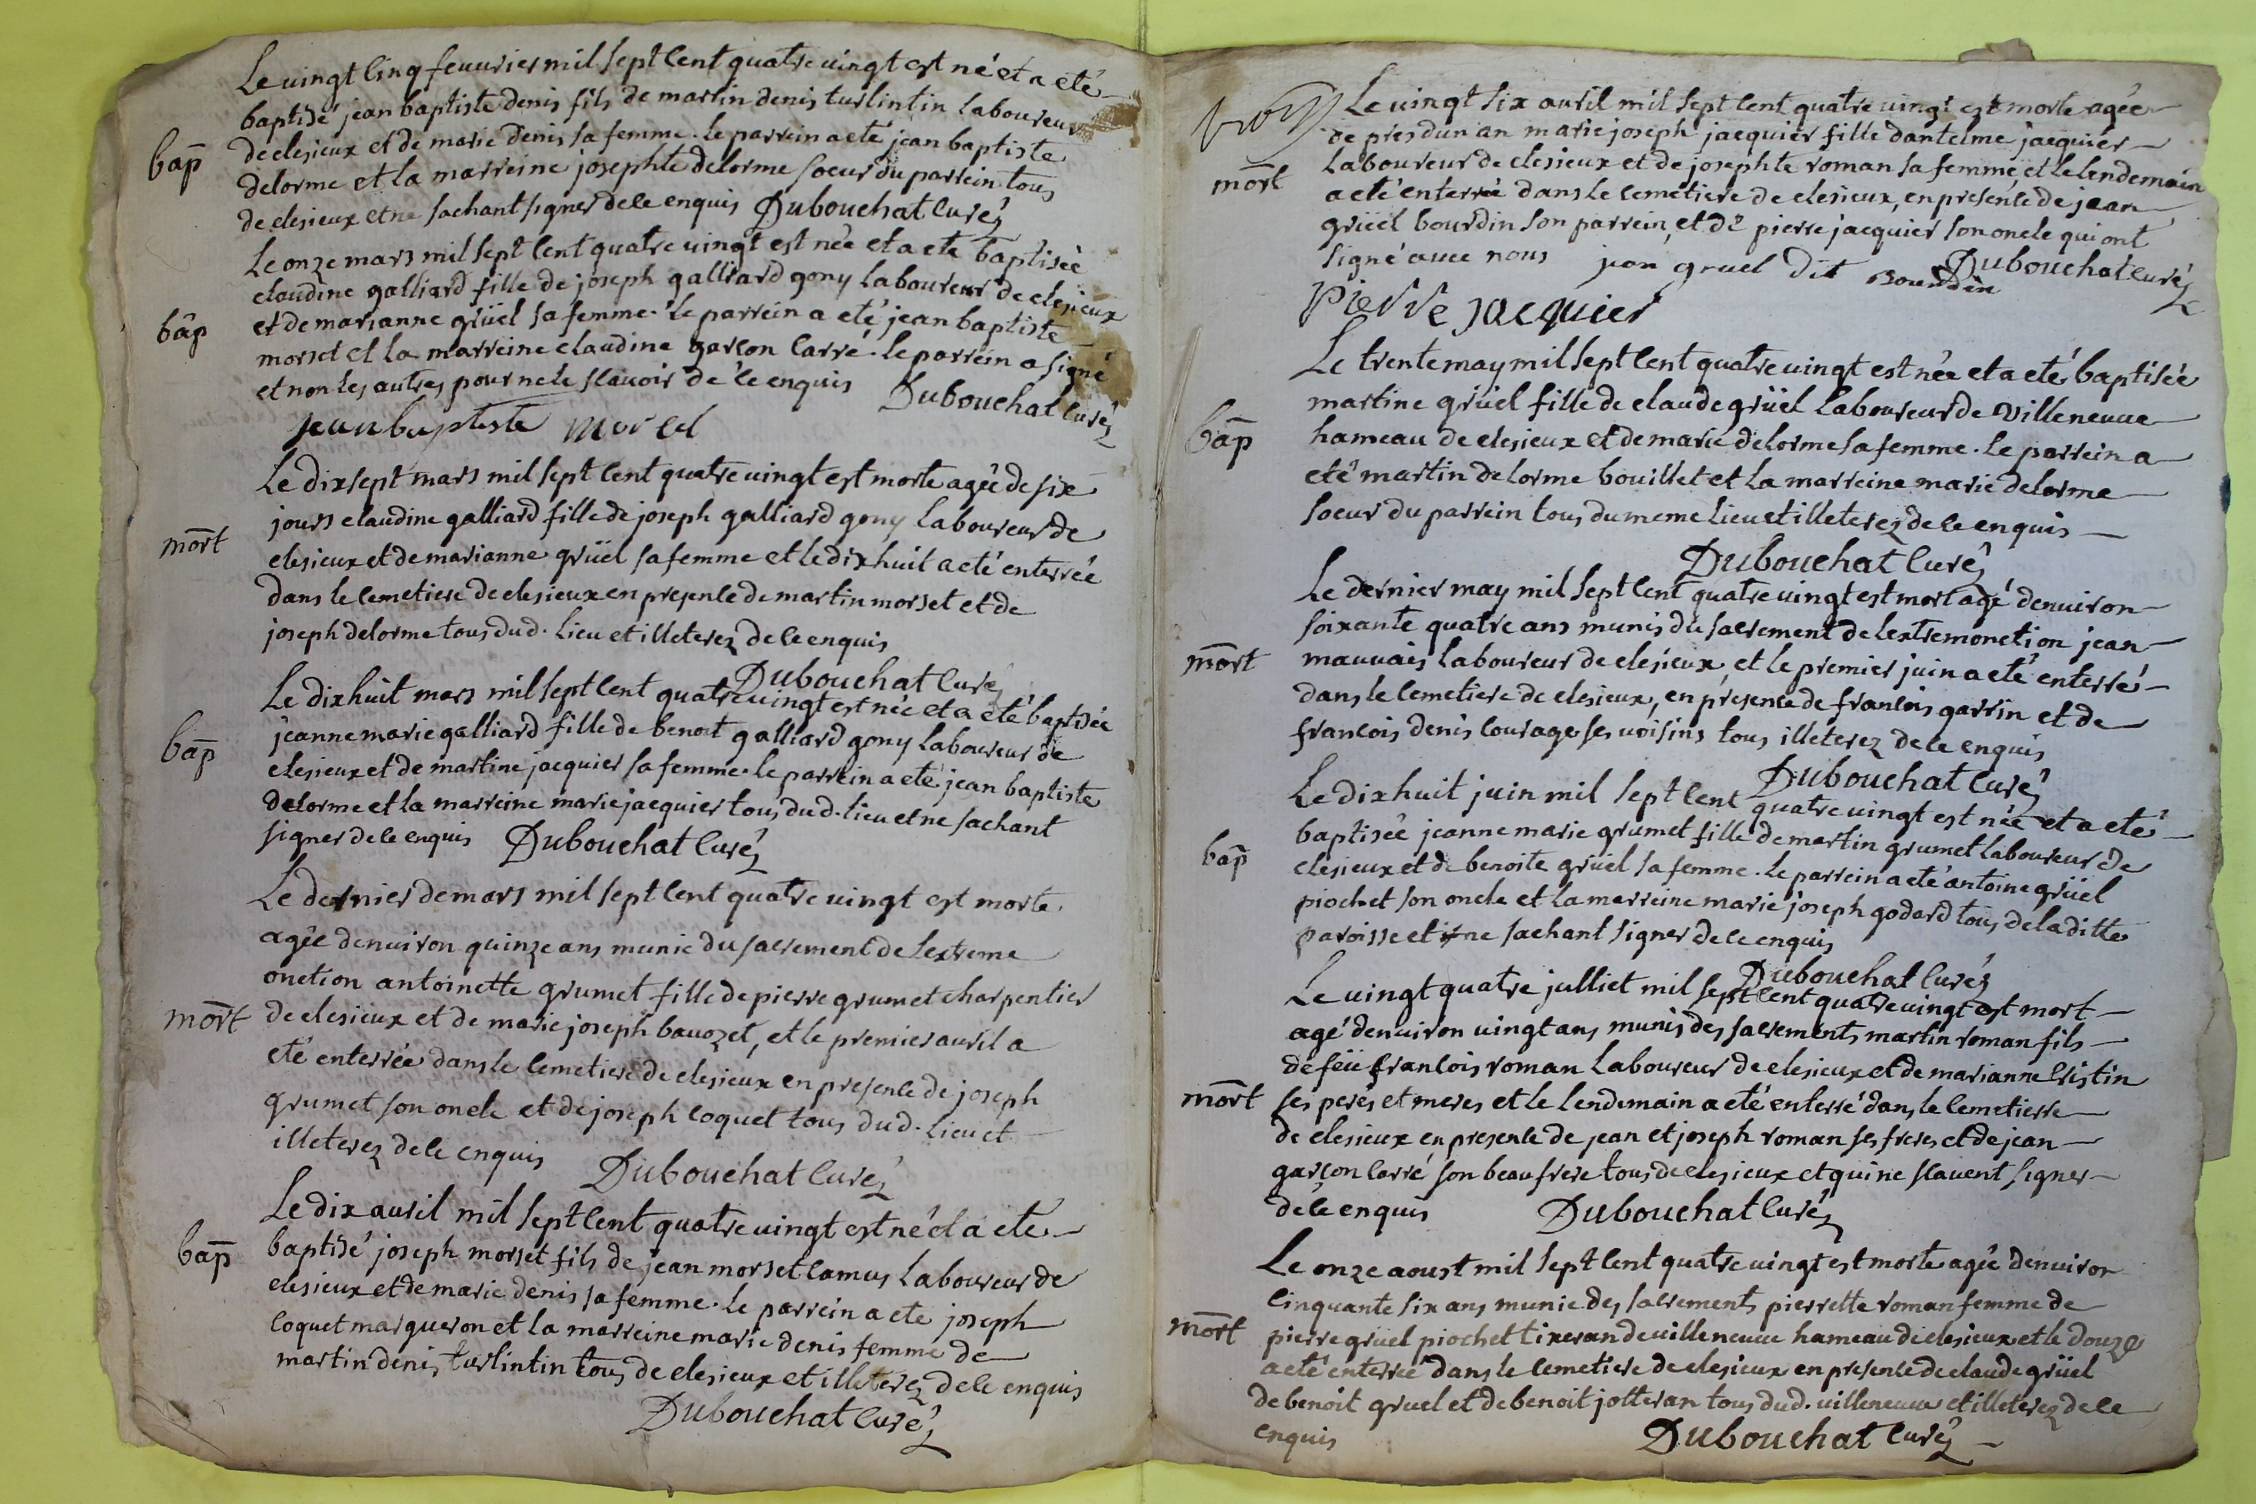 Le vingt cinq fevvrier mil sept cent quatre vingt est né et a eté
baptisé jean baptiste denis fils de martin denis turlintin laboureur
bap
de clesieux et de marie denis sa femme. le parrein a eté jean baptiste
delorme et la marreine josephte delorme soeur du parrein tous
de clesieux et ne sachant signer de ce enquis Dubouchat curé
Le onze mars mil sept cent quatre vingt est née et a eté baptisée
claudine galliard fille de joseph galliard gony laboureur de clesieux
bap
et de marianne grüel sa femme. le parrein a eté jean baptiste
morset et la marreine claudine garcon carré. le parrein a signé
et non les autres pour ne le scavoir de ce enquis Dubouchat curé
jean baptiste morsel
Le dix sept mars mil sept cent quatre vingt est morte agée de six
jours claudine galliard fille de joseph galliard gony laboureur de
mort
clesieux et de marianne grüel sa femme et le dix huit a eté enterrée
dans le cemetiere de clesieux en presence de martin morset et de
joseph delorme tous dud. lieu et illeterez de ce enquis
Dubouchat curé
Le dix huit mars mil sept cent quatre vingt est née et a eté baptisée
jeanne marie galliard fille de benoit galliard gony laboureur de
bap
clesieux et de martine jacquier sa femme. le parrein a eté jean baptiste
delorme et la marreine marie jacquier tous dud. lieu et ne sachant
signer de ce enquis Dubouchat curé
Le dernier de mars mil sept cent quatre vingt est morte
agée denviron quinze ans munie du sacrement de lextreme
onction antoinette grumet fille de pierre grumet charpentier
mort
de clesieux et de marie joseph bavozet, et le premier avril a
eté enterrée dans le cemetiere de clesieux en presence de joseph
grumet son oncle et de joseph coquet tous dud. lieu et
illeterez de ce enquis Dubouchat curé
Le dix avril mil sept cent quatre vingt est né et a eté
bap
baptisé joseph morset fils de jean morset camus laboureur de
clesieux et de marie denis sa femme. le parrein a eté joseph
coquet marqueron et la marreine marie denis femme de
martin denis turlintin tous de clesieux et illeterez de ce enquis
Dubouchat curé
Le vingt six avril mil sept cent quatre vingt est morte agée
de pres dun an marie joseph jacquier fille dantelme jacquier
mort
laboureur de clesieux et de josephte roman sa femme et le lendemain
a eté enterrée dans le cemetiere de clesieux, en presence de jean
grüel bourdin son parrein, et de pierre jacquier son oncle qui ont
signé avec nous jean gruel dit Bourdin Dubouchat curé
pierre jacquier
Le trente may mil sept cent quatre vingt est née et a eté baptisée
martine grüel fille de claude grüel laboureur de villeneuve
bap
hameau de clesieux et de marie delorme sa femme. le parrein a
eté martin delorme bouillet et la marreine marie delorme
soeur du parrein tous du meme lieu et illeterez de ce enquis
Dubouchat curé
Le dernier may mil sept cent quatre vingt est mort agé denviron
soixante quatre ans munis du sacrement de lextremonction jean
mort
mauvais laboureur de clesieux, et le premier juin a eté enterré
dans le cemetiere de clesieux, en presence de francois garrin et de
francois denis courage ses voisins tous illeterez de ce enquis
Dubouchat curé
Le dix huit juin mil sept cent quatre vingt est née et a eté
baptisée jeanne marie grumet fille de martin grumet laboureur de
bap
clesieux et de benoite grüel sa femme. le parrein a eté antoine grüel
piochet son oncle et la marreine marie joseph godard tous de la ditte
paroisse et ne sachant signer de ce enquis
Dubouchat curé
Le vingt quatre julliet mil sept cent quatre vingt est mort
agé denviron vingt ans munis des sacrements martin roman fils
de feü francois roman laboureur de clesieux et de marianne cristin
mort
ses perés et meres et le lendemain a eté enterré dans le cemetierre
de clesieux en presence de jean et joseph roman ses freres et de jean
garcon carré son beaufrere tous de clesieux et qui ne scavent signer
de ce enquis Dubouchat curé
Le onze aoust mil sept cent quatre vingt est morte agée denviron
cinquante six ans munie des sacrements pierrette roman femme de
mort
pierre grüel piochet tixeran de villeneuve hameau de clesieux et le douze
a eté enterrée dans le cemetiere de clesieux en presence de claude grüel
de benoit gruel et de benoit jolteran tous dud. villeneuve et illeterez de ce
enquis Dubouchat curé